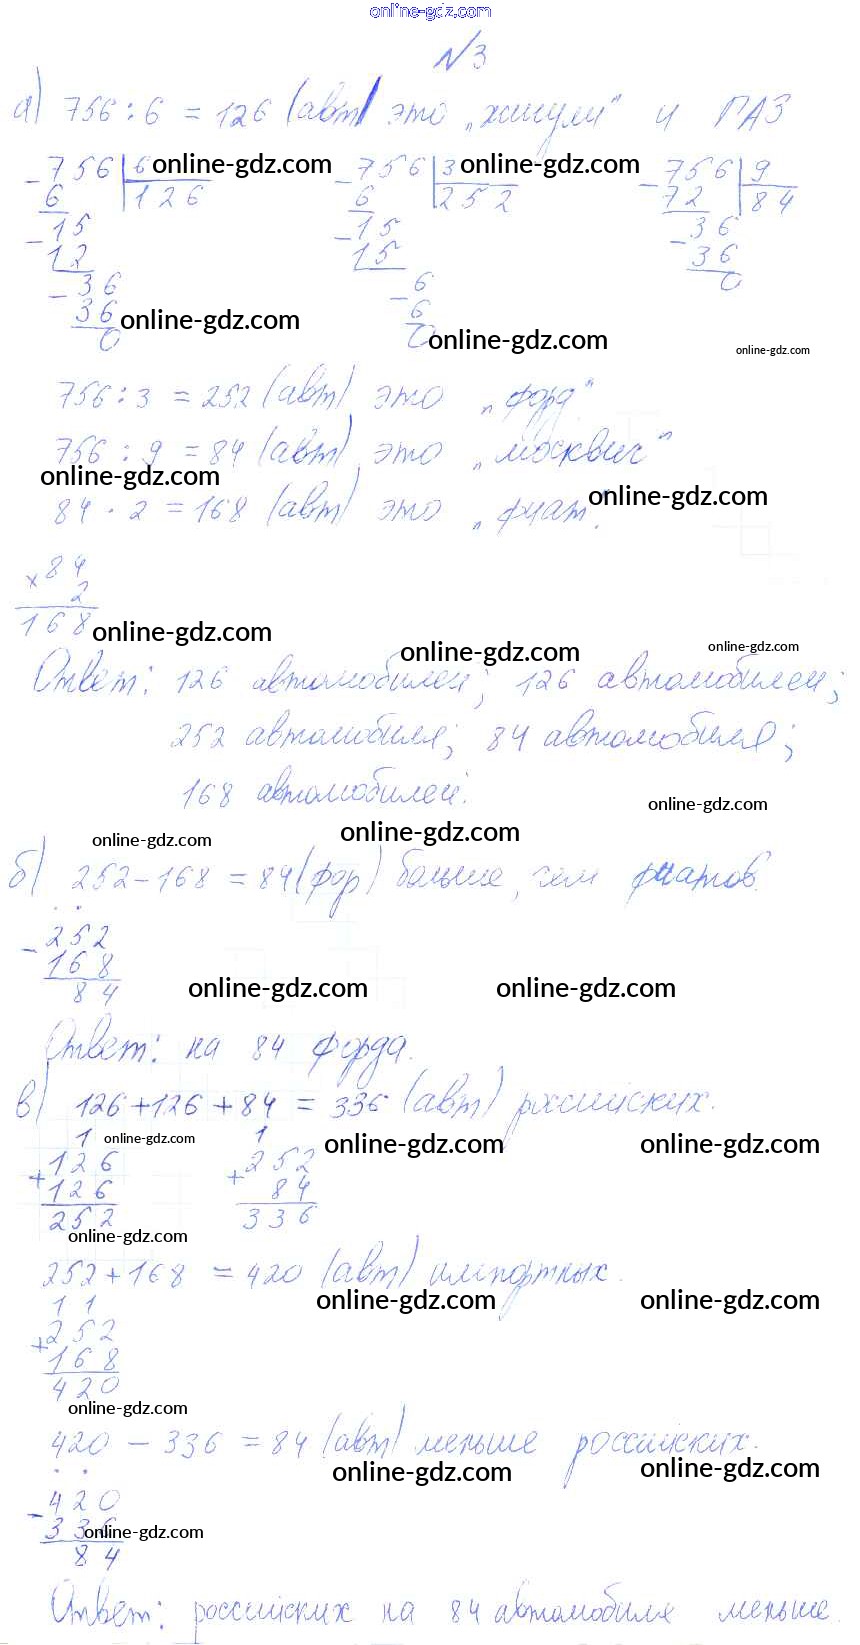 online-gdz.com
№3
а) 756 : 6 = 126 (авт) это „жигули" и ГАЗ
- 756 | 6 online-gdz.com - 756 | 3 online-gdz.com - 756 | 9
6 126 6 252 72 84
- 15 - 15 - 36
12 15 36
- 36 - 6 0
36 online-gdz.com 6
0 0 online-gdz.com online-gdz.com
756 : 3 = 252 (авт) это „форд"
756 : 9 = 84 (авт) это „москвич"
online-gdz.com online-gdz.com
84 · 2 = 168 (авт) это „фиат".
× 84
2
168 online-gdz.com online-gdz.com online-gdz.com
Ответ: 126 автомобилей; 126 автомобилей;
252 автомобиля; 84 автомобиля;
168 автомобилей.
online-gdz.com online-gdz.com online-gdz.com
б) 252 - 168 = 84 (фор) больше, чем фиатов.
- 252
168
84 online-gdz.com online-gdz.com
Ответ: на 84 форда.
в) 126 + 126 + 84 = 336 (авт) российских.
1 online-gdz.com 1 online-gdz.com online-gdz.com
+ 126 + 252
126 84
252 336
online-gdz.com
252 + 168 = 420 (авт) импортных.
1 1 online-gdz.com online-gdz.com
+ 252
168
420
online-gdz.com
420 - 336 = 84 (авт) меньше российских.
online-gdz.com online-gdz.com
- 420
336 online-gdz.com
84
Ответ: российских на 84 автомобиля меньше.